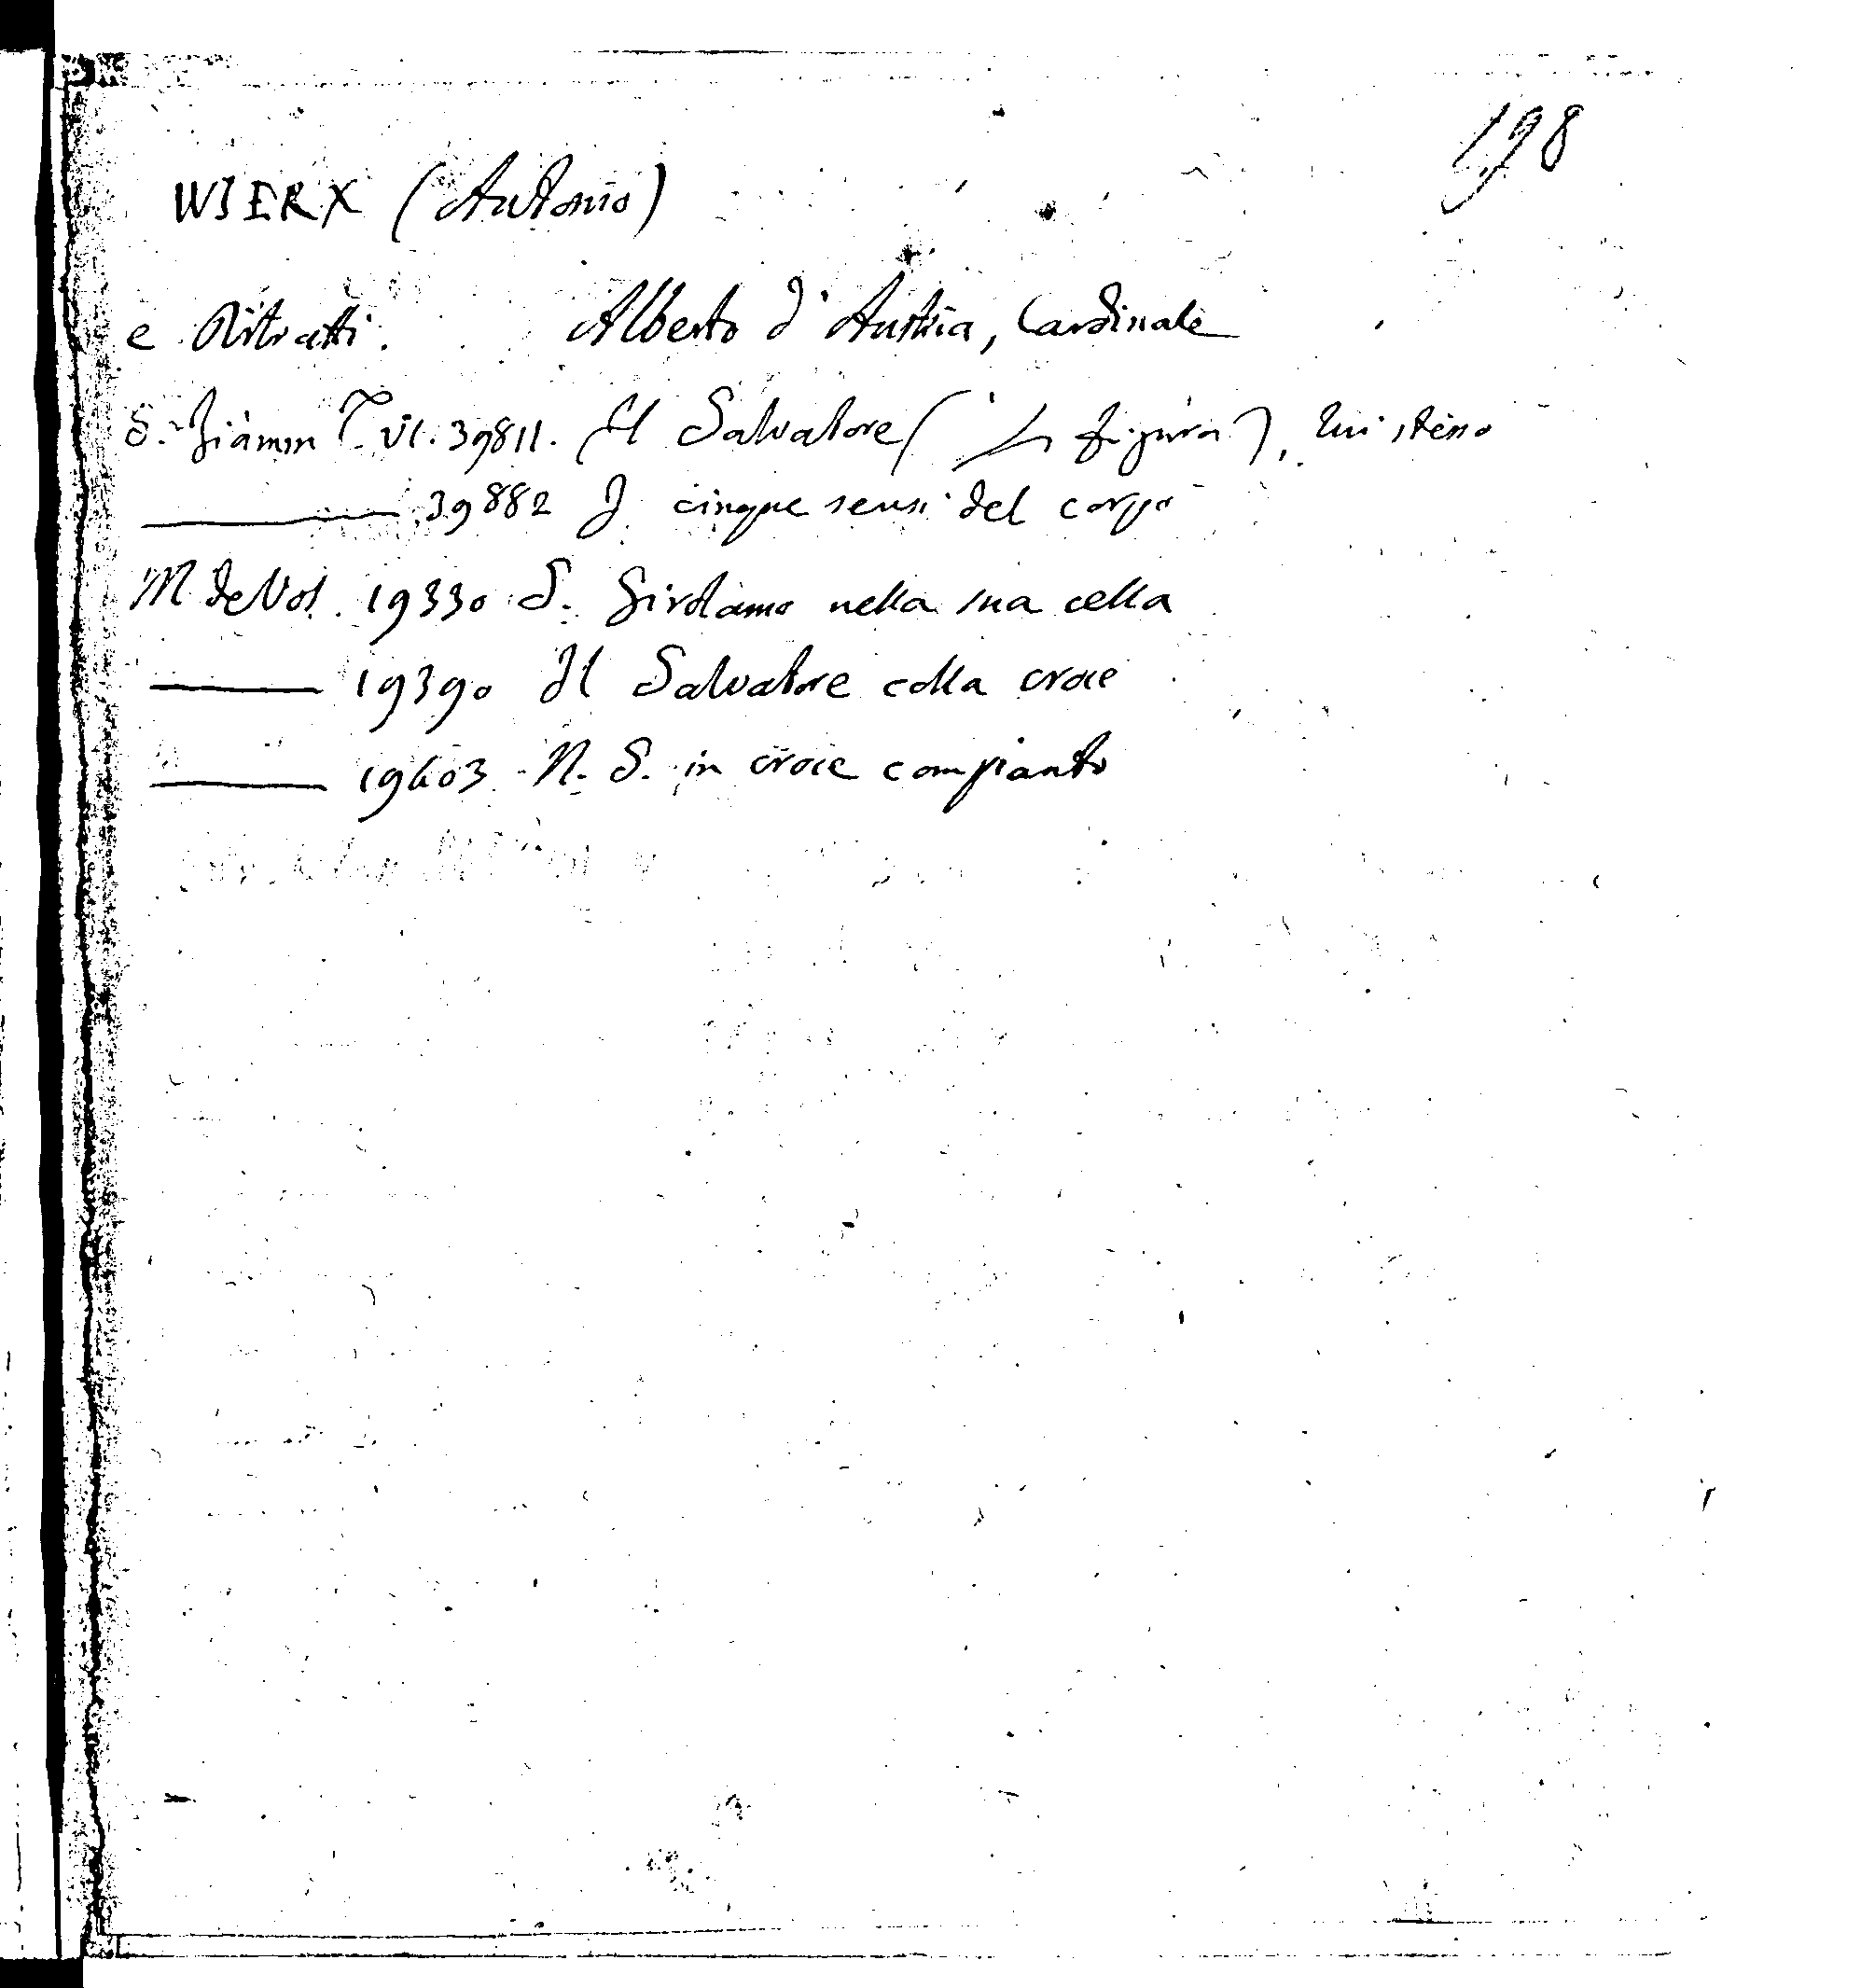 198
WIERX (Antonio)
e Ritratti. Alberto d'Austria, Cardinale
S. Giamin T. VI. 39811. Il Salvatore ( ½ figura), lui stesso
39882 I cinque sensi del corpo
M. de Vos. 19330 S. Girolamo nella sua cella
19390 Il Salvatore colla croce
19603 N. S. in croce compianto